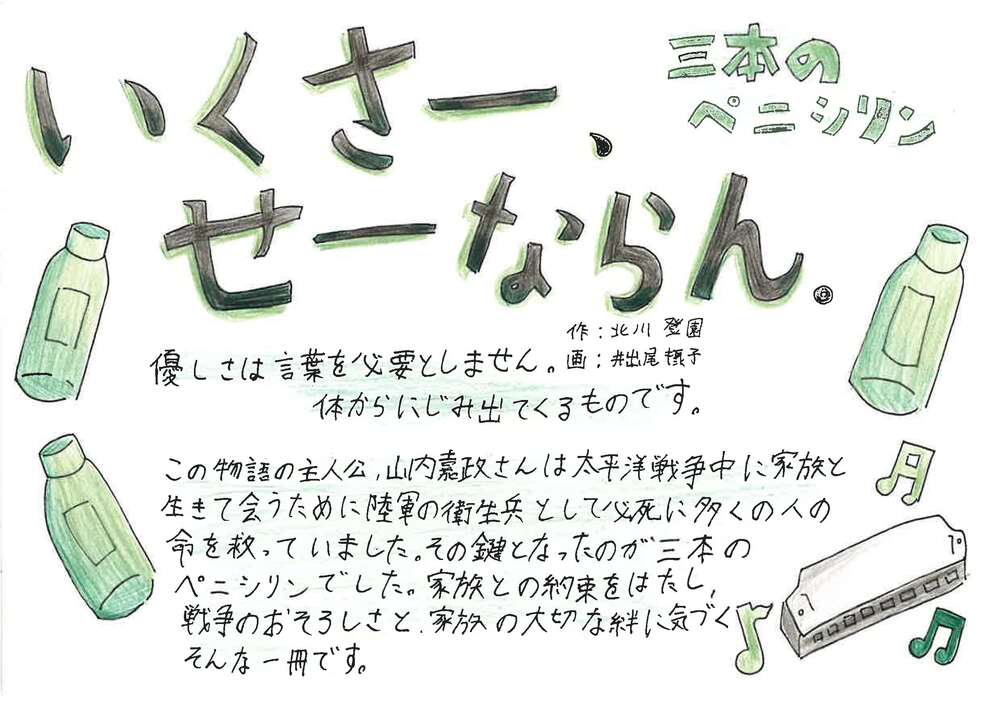 いくさー、
せーならん。
三本の
ペニシリン
作:北川 登園
画:井出尾 摂子
優しさは言葉を必要としません。
体からにじみ出てくるものです。
この物語の主人公,山内嘉政さんは太平洋戦争中に家族と
生きて会うために陸軍の衛生兵として必死に多くの人の
命を救っていました。その鍵となったのが三本の
ペニシリンでした。家族との約束をはたし,
戦争のおそろしさと、家族の大切な絆に気づく
そんな一冊です。